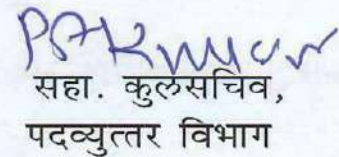 सहा. कुलसचिव,
पदव्युत्तर विभाग